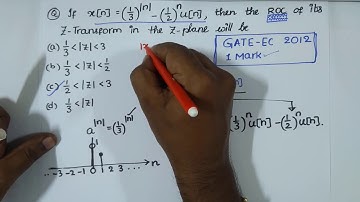 Q. If x[n] = (1/3)^|n| − (1/2)^n u[n], then the ROC of its
Z-Transform in the Z-plane will be
(a) 1/3 < |Z| < 3
(b) 1/3 < |Z| < 1/2
(c) 1/2 < |Z| < 3
(d) 1/3 < |Z|
GATE-EC 2012
1 Mark
a^|n| = (1/3)^|n|
1
-3 -2 -1 0 1 2 3 ... n
(1/3)^n u[n] − (1/2)^n u[n].